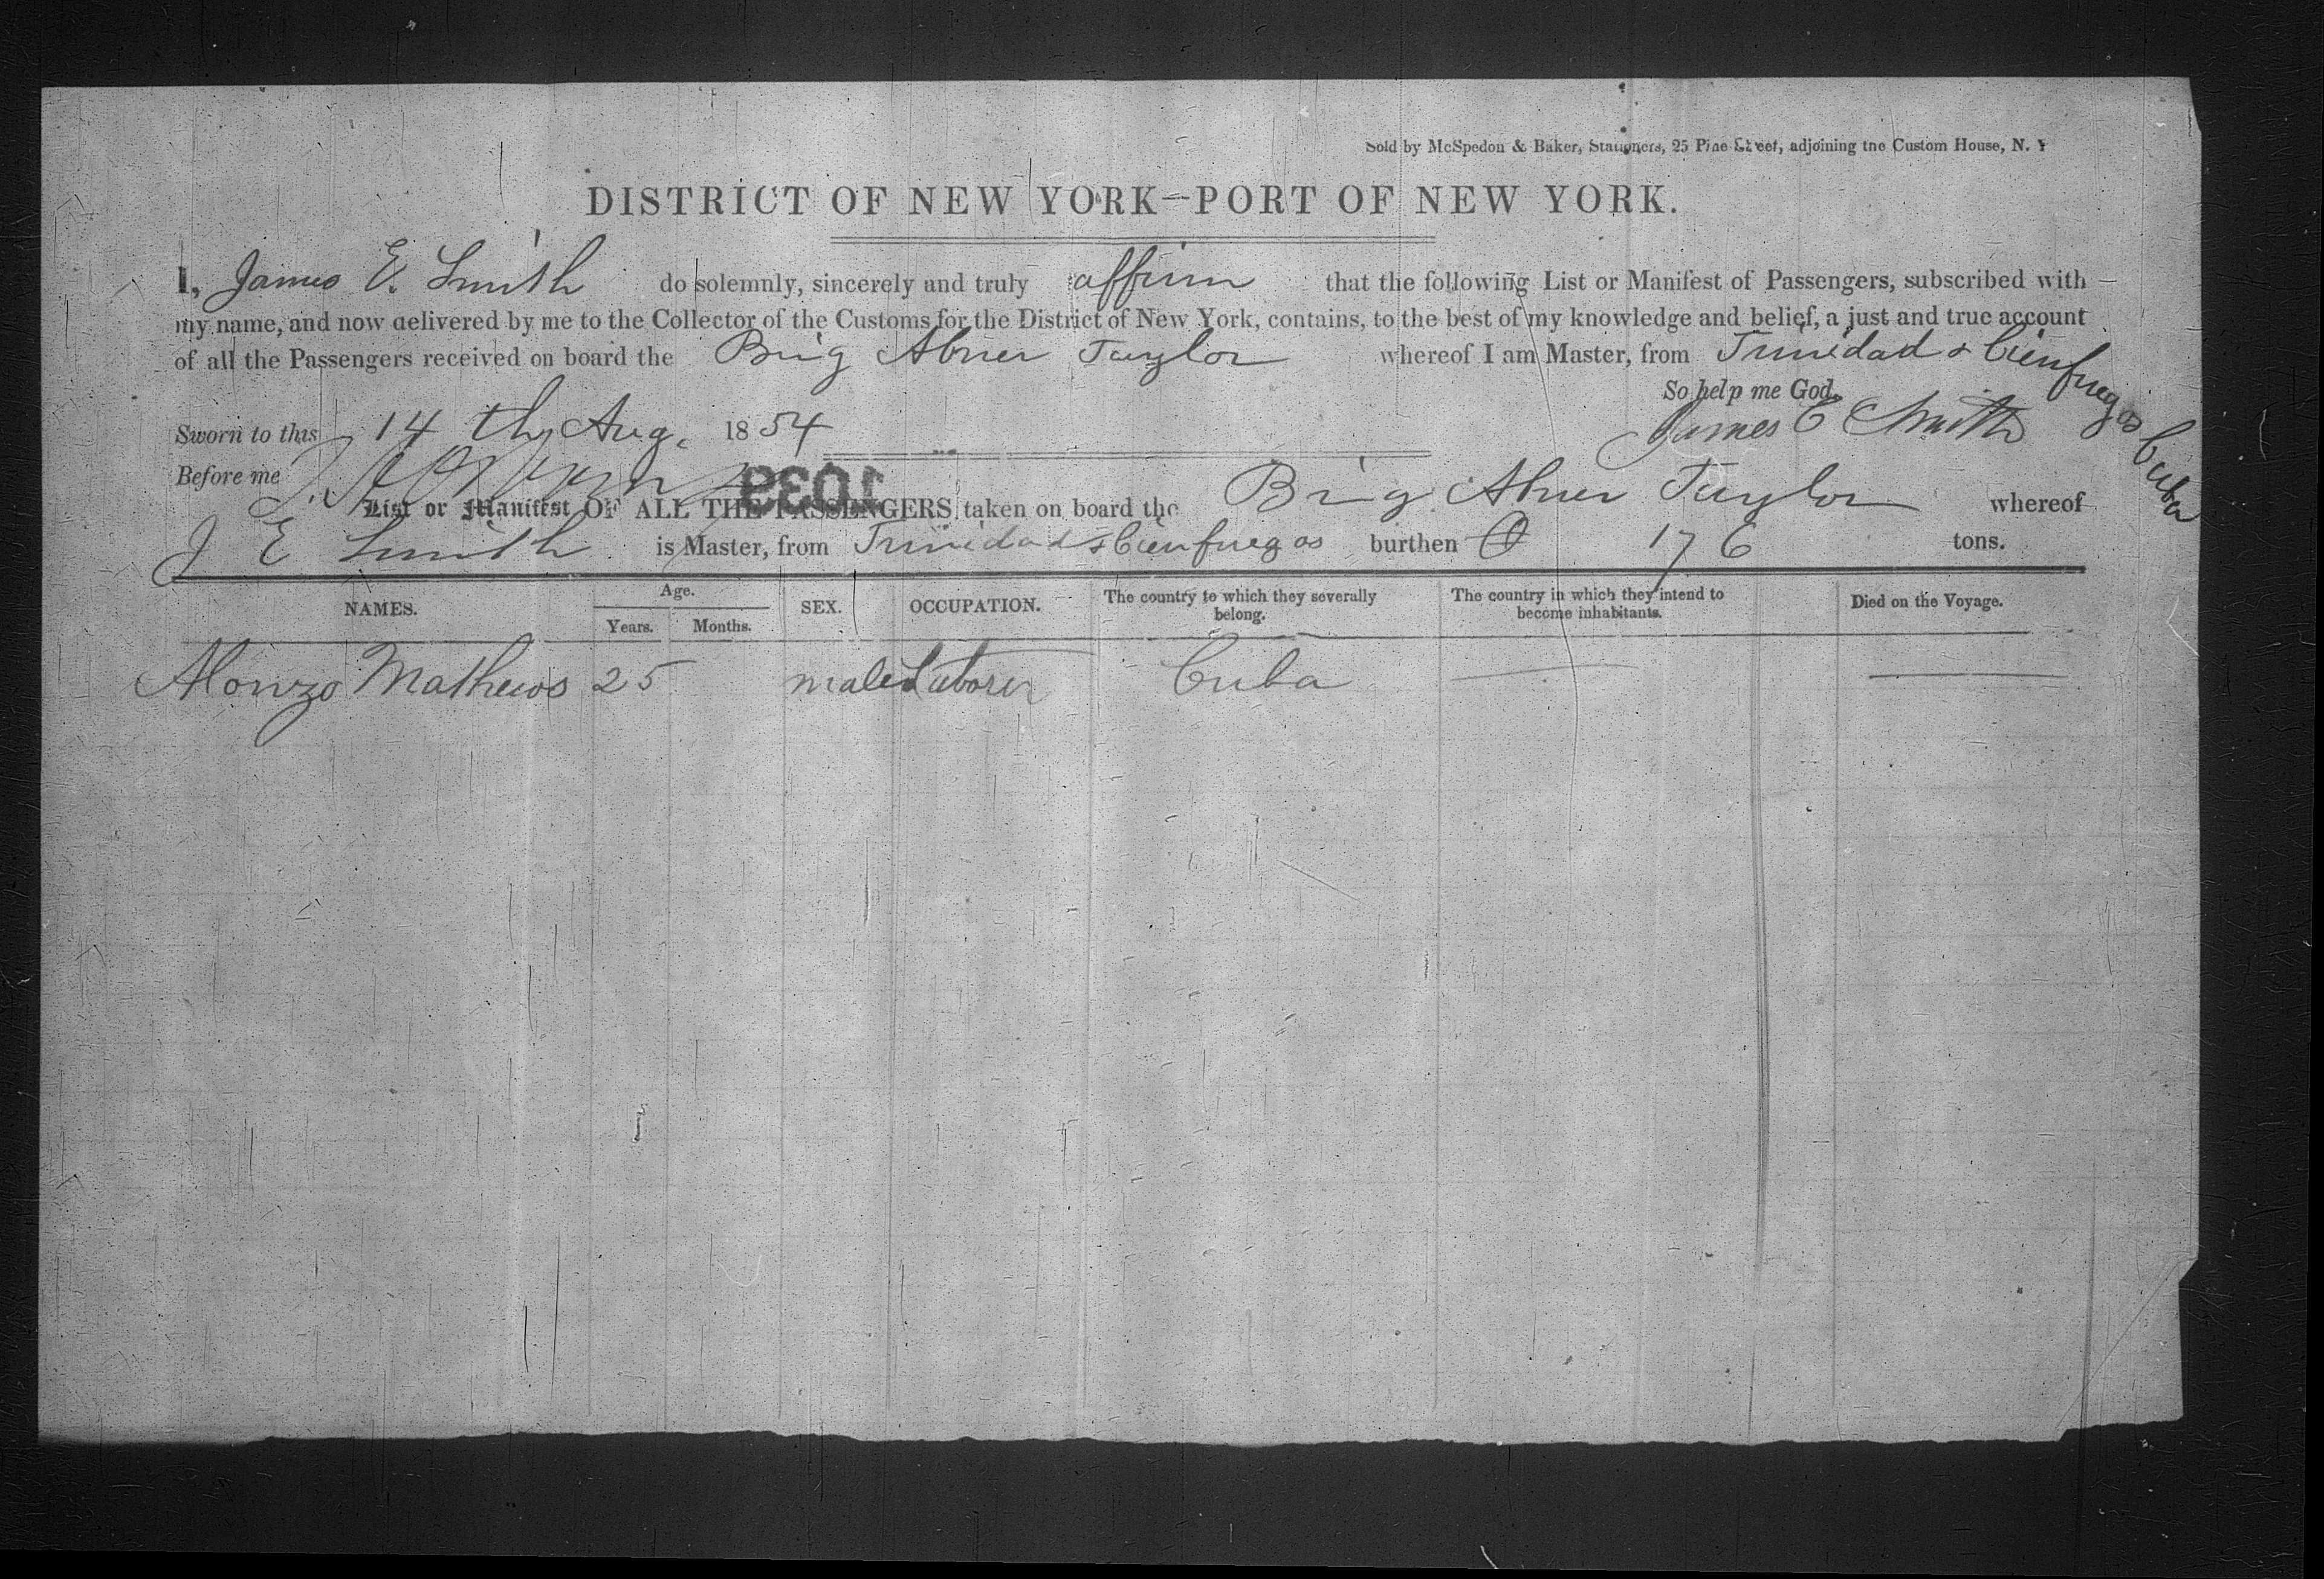 Sold by McSpedon & Baker, Stationers, 25 Pine Street, adjoining the Custom House, N. Y
DISTRICT OF NEW YORK—PORT OF NEW YORK.
I, James E. Smith do solemnly, sincerely and truly affirm that the following List or Manifest of Passengers, subscribed with
my name, and now delivered by me to the Collector of the Customs for the District of New York, contains, to the best of my knowledge and belief, a just and true account
of all the Passengers received on board the Brig Abner Taylor whereof I am Master, from Trinidad & Cienfuegos Cuba
So help me God.
Sworn to this 14 th Aug. 1854 James E Smith
Before me
1039
List or Manifest OF ALL THE PASSENGERS taken on board the Brig Abner Taylor whereof
J E Smith is Master, from Trinidad & Cienfuegos burthen 176 tons.
NAMES. Age. Years. Months. SEX. OCCUPATION. The country to which they severally belong. The country in which they intend to become inhabitants. Died on the Voyage.
Alonzo Mathews 25 male Laborer Cuba —— ——